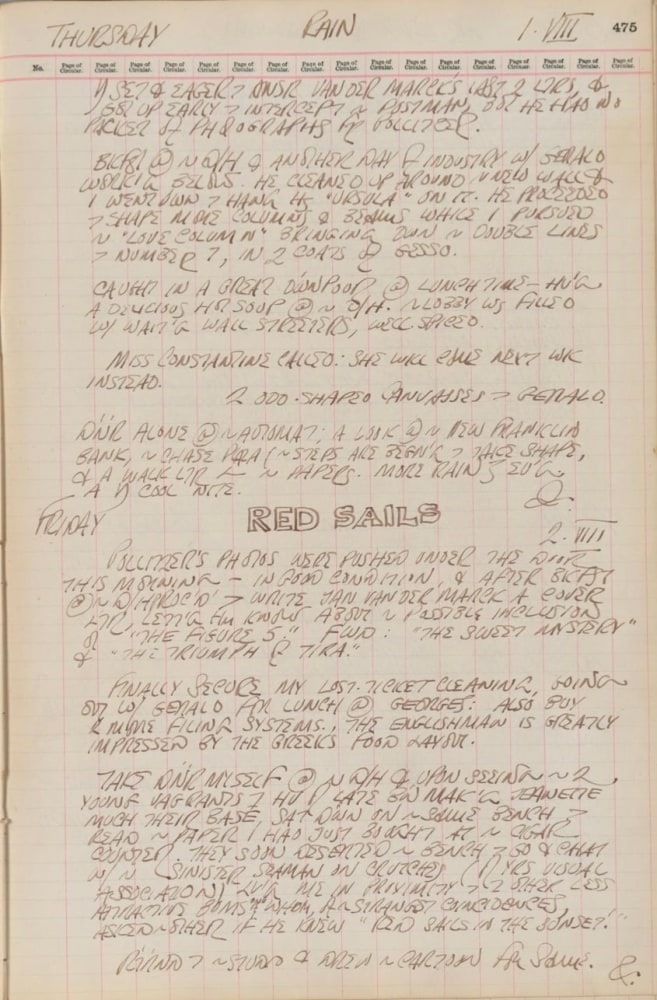 THURSDAY RAIN 1·VIII 475
No. Page of Circular. Page of Circular. Page of Circular. Page of Circular. Page of Circular. Page of Circular. Page of Circular. Page of Circular. Page of Circular. Page of Circular. Page of Circular. Page of Circular. Page of Circular. Page of Circular. Page of Circular. Page of Circular.
SET & EAGER > ANSR VAN DER MARCK'S LAST 2 LTRS, &
GOT UP EARLY > INTERCEPT ~ POSTMAN, BUT HE HAD NO
PACKET OF PHOTOGRAPHS FR POLLITZER.
BKFST @ ~ D/H & ANOTHER DAY OF INDUSTRY W/ GERALD
WORK'G BELOW. HE CLEANED UP AROUND NEW WALL &
I WENT DOWN > HANG HS "URSULA" ON IT. HE PROCEEDED
> SHAPE MORE COLUMNS & BEAMS WHILE I PURSUED
~ "LOVE COLUMN" BRINGING DWN ~ DOUBLE LINES
> NUMBER 7, IN 2 COATS OF GESSO.
CAUGHT IN A GREAT D'WNPOUR @ LUNCHTIME — HV'G
A DELICIOUS HOT SOUP @ ~ D/H. ~ LOBBY WS FILLED
W/ WAIT'G WALL STREETERS, WELL SPICED.
MISS CONSTANTINE CALLED: SHE WILL COME NEXT WK
INSTEAD.
2 ODD-SHAPED CANVASSES > GERALD.
D'NR ALONE @ ~ AUTOMAT; A LOOK @ ~ NEW FRANKLIN
BANK, ~ CHASE PLAZA (~ STEPS ARE BEGN'G > TAKE SHAPE,
& A WALK LTR ~ PAPERS. MORE RAIN
A COOL NITE.
FRIDAY RED SAILS 2·VIII
POLLITZER'S PHOTOS WERE PUSHED UNDER THE DOOR
THIS MORNING — IN GOOD CONDITION, & AFTER BKFST
@ ~ D/H PROC'D > WRITE JAN VAN DER MARCK A COVER
LTR, LET'G HM KNOW ABOUT ~ POSSIBLE INCLUSION
OF "THE FIGURE 5." FWD: "THE SWEET MYSTERY"
& "THE TRIUMPH OF TIRA."
FINALLY SECURE MY LOST-TICKET CLEANING, GOING
OUT W/ GERALD FOR LUNCH @ GEORGES: ALSO BUY
MORE FILING SYSTEMS., THE ENGLISHMAN IS GREATLY
IMPRESSED BY THE GREEK'S FOOD LAYOUT.
TAKE D'NR MYSELF @ ~ D/H & UPON SEEING ~ 2
YOUNG VAGRANTS HV LATE BN MAK'G JEANETTE
MUCH THEIR BASE, SAT DWN ON ~ SAME BENCH >
READ ~ PAPER I HAD JUST BOUGHT AT ~ CIGAR
COUNTER. THEY SOON DESERTED ~ BENCH > GO & CHAT
W/ ~ SINISTER SEAMAN ON CRUTCHES ( YRS VISUAL
ASSOCIATION) LV'G ME IN PROXIMITY > 2 OTHER LESS
ATTRACTIVE BUMS WHOM, ~ STRANGEST COINCIDENCES,
ASKED ~ OTHER IF HE KNEW "RED SAILS IN THE SUNSET."
R'T'RND > ~ STUDIO & DREW ~ CARTOON FOR SAME.